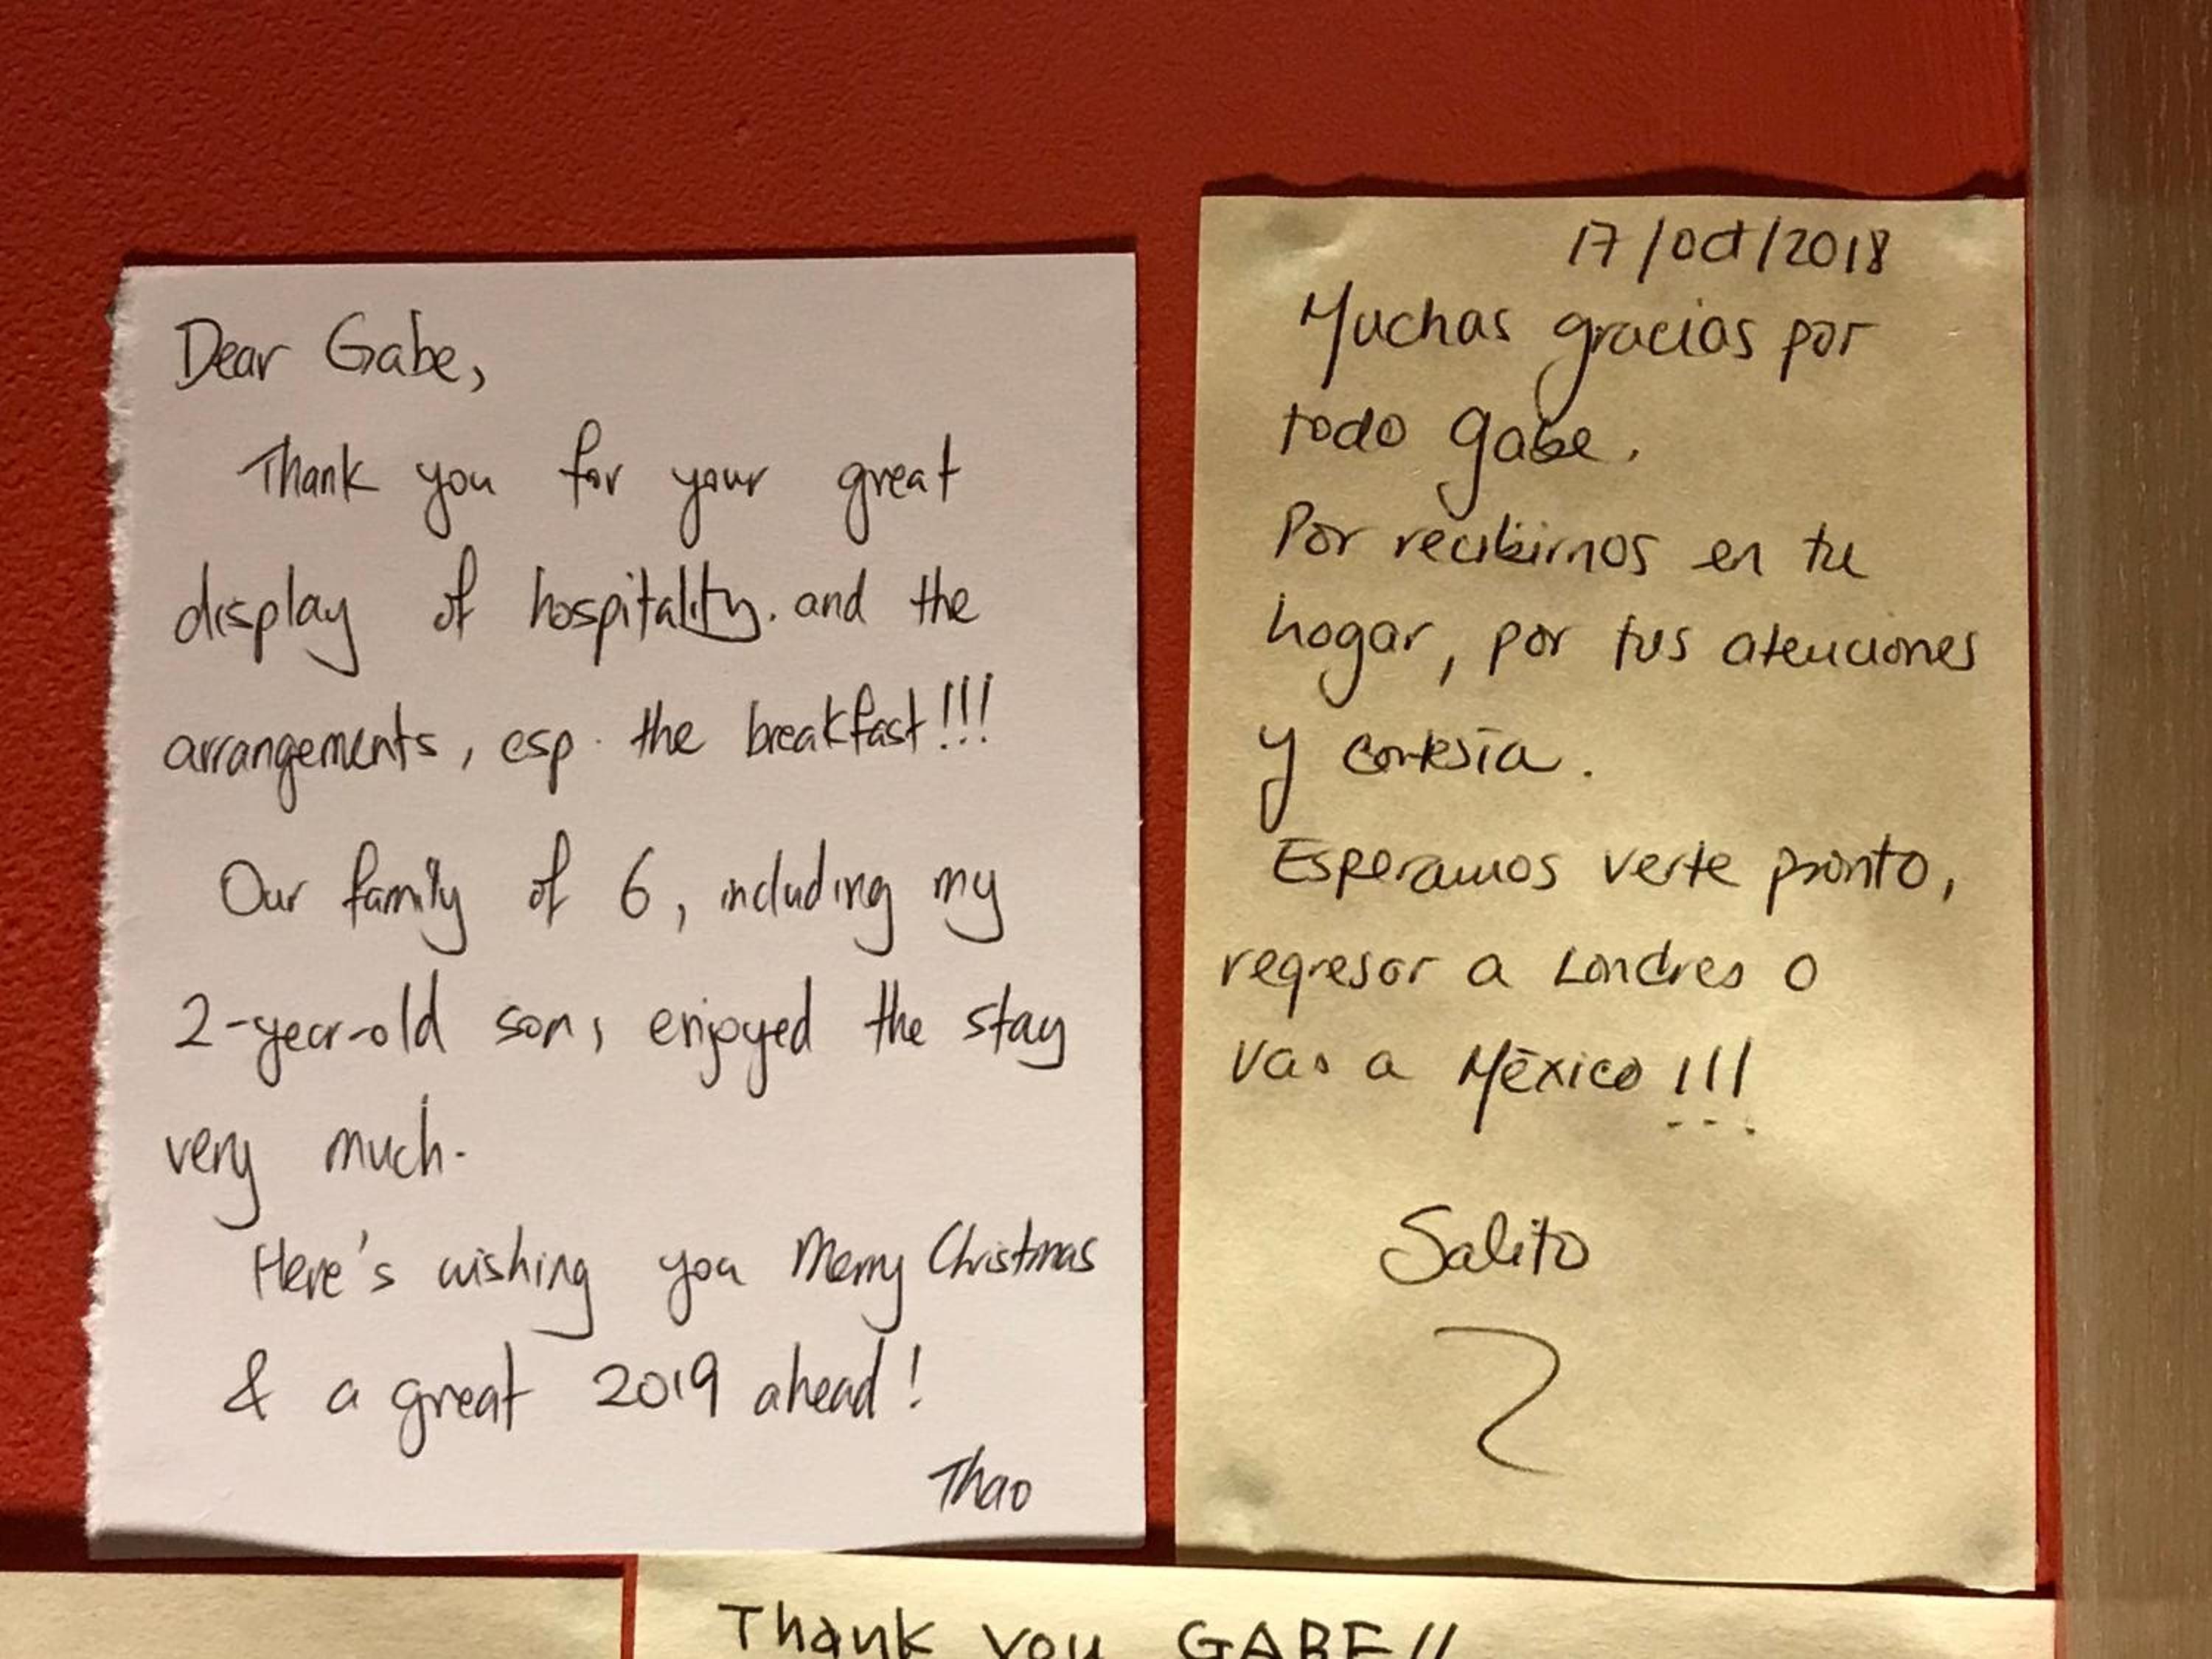 Dear Gabe,
Thank you for your great
display of hospitality. and the
arrangements, esp. the breakfast!!!
Our family of 6, including my
2-year-old son, enjoyed the stay
very much.
Here's wishing you Merry Christmas
& a great 2019 ahead!
Thao
17/Oct/2018
Muchas gracias por
todo Gabe.
Por recibirnos en tu
hogar, por tus atenciones
y cortesía.
Esperamos verte pronto,
regresar a Londres o
vas a México!!!
Salito
Thank you GABE!!